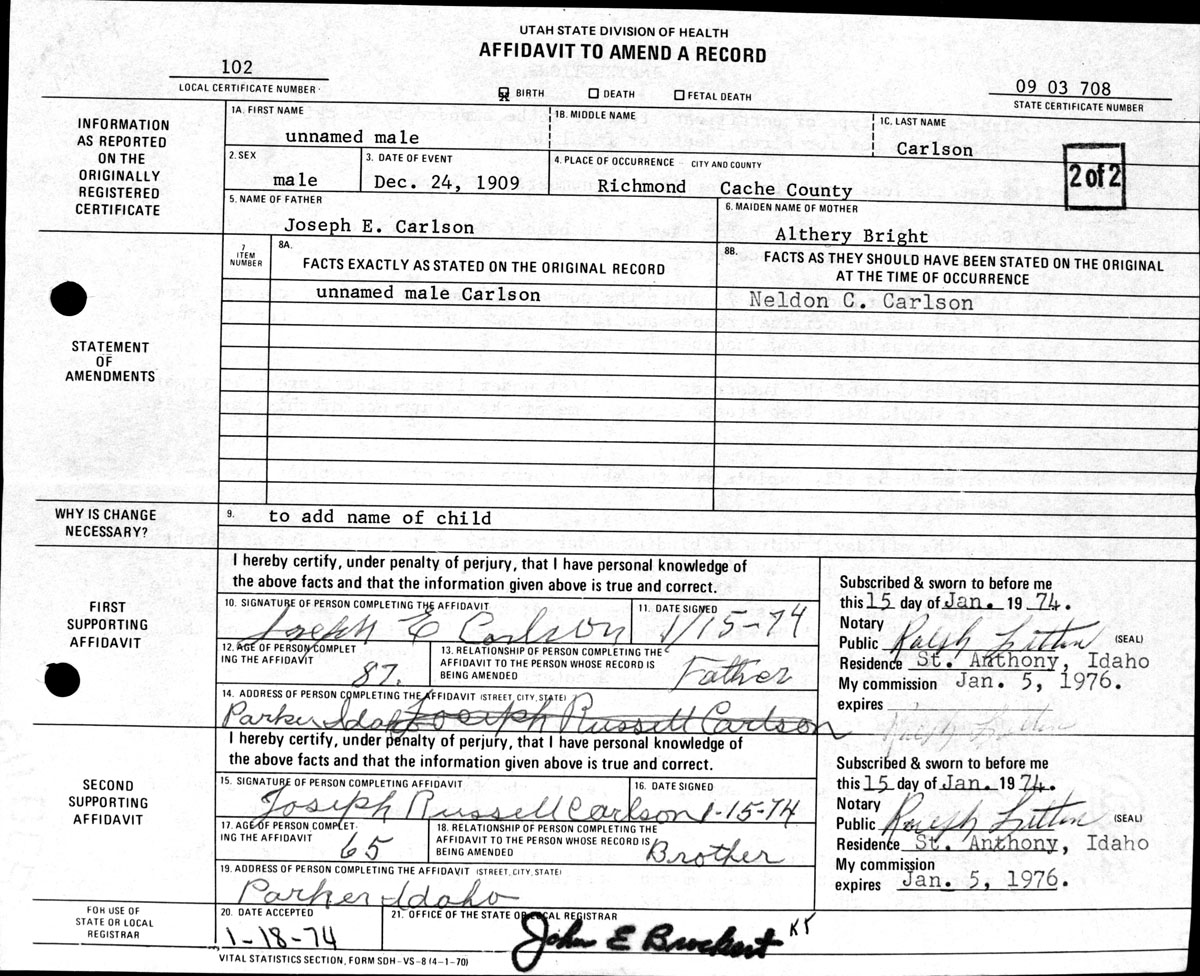 UTAH STATE DIVISION OF HEALTH
AFFIDAVIT TO AMEND A RECORD
102
LOCAL CERTIFICATE NUMBER
BIRTH DEATH FETAL DEATH
09 03 708
STATE CERTIFICATE NUMBER
INFORMATION AS REPORTED ON THE ORIGINALLY REGISTERED CERTIFICATE
1A. FIRST NAME
unnamed male
1B. MIDDLE NAME
1C. LAST NAME
Carlson
2 of 2
2. SEX
male
3. DATE OF EVENT
Dec. 24, 1909
4. PLACE OF OCCURRENCE - CITY AND COUNTY
Richmond Cache County
5. NAME OF FATHER
Joseph E. Carlson
6. MAIDEN NAME OF MOTHER
Althery Bright
STATEMENT OF AMENDMENTS
7 ITEM NUMBER
8A.
FACTS EXACTLY AS STATED ON THE ORIGINAL RECORD
8B. FACTS AS THEY SHOULD HAVE BEEN STATED ON THE ORIGINAL
AT THE TIME OF OCCURRENCE
unnamed male Carlson
Neldon C. Carlson
WHY IS CHANGE NECESSARY?
9. to add name of child
FIRST SUPPORTING AFFIDAVIT
I hereby certify, under penalty of perjury, that I have personal knowledge of
the above facts and that the information given above is true and correct.
10. SIGNATURE OF PERSON COMPLETING THE AFFIDAVIT
Joseph E Carlson
11. DATE SIGNED
1/15-74
12. AGE OF PERSON COMPLETING THE AFFIDAVIT
87.
13. RELATIONSHIP OF PERSON COMPLETING THE
AFFIDAVIT TO THE PERSON WHOSE RECORD IS
BEING AMENDED
Father
14. ADDRESS OF PERSON COMPLETING THE AFFIDAVIT (STREET, CITY, STATE)
Parker Idaho Joseph Russell Carlson
Subscribed & sworn to before me
this 15 day of Jan. 1974.
Notary
Public Ralph Litton (SEAL)
Residence St. Anthony, Idaho
My commission Jan. 5, 1976.
expires
Ralph Litton
SECOND SUPPORTING AFFIDAVIT
I hereby certify, under penalty of perjury, that I have personal knowledge of
the above facts and that the information given above is true and correct.
15. SIGNATURE OF PERSON COMPLETING AFFIDAVIT
Joseph Russell Carlson
16. DATE SIGNED
1-15-74
17. AGE OF PERSON COMPLETING THE AFFIDAVIT
65
18. RELATIONSHIP OF PERSON COMPLETING THE
AFFIDAVIT TO THE PERSON WHOSE RECORD IS
BEING AMENDED
Brother
19. ADDRESS OF PERSON COMPLETING THE AFFIDAVIT (STREET, CITY, STATE)
Parker Idaho
Subscribed & sworn to before me
this 15 day of Jan. 1974.
Notary
Public Ralph Litton (SEAL)
Residence St. Anthony, Idaho
My commission
expires Jan. 5, 1976.
FOR USE OF STATE OR LOCAL REGISTRAR
20. DATE ACCEPTED
1-18-74
21. OFFICE OF THE STATE OR LOCAL REGISTRAR
John E Brockert KT
VITAL STATISTICS SECTION, FORM SDH-VS-8 (4-1-70)